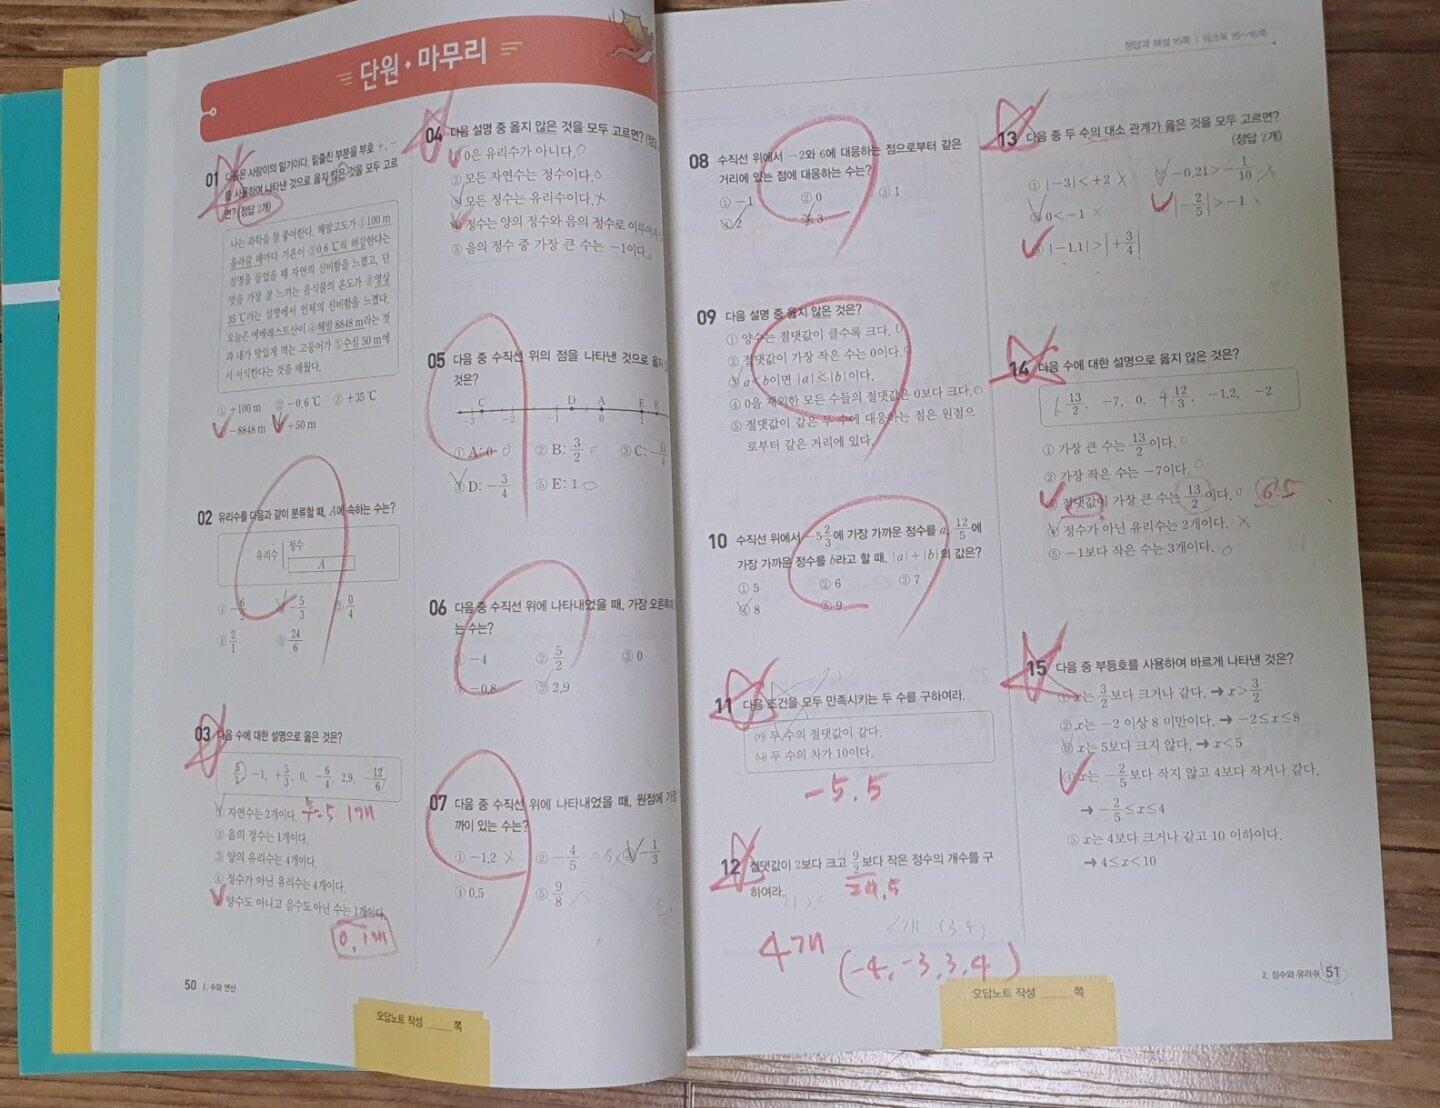 단원·마무리
01 다음은 사랑이의 일기이다. 밑줄친 부분을 부호 +, -
를 사용하여 나타낸 것으로 옳지 않은 것을 모두 고르
면? (정답 2개)
나는 과학을 참 좋아한다. 해발고도가 ①100 m
올라갈 때마다 기온이 ②0.6 ℃씩 하강한다는
설명을 들었을 때 자연의 신비함을 느꼈고, 단
맛을 가장 잘 느끼는 음식물의 온도가 ③영상
35 ℃라는 설명에서 인체의 신비함을 느꼈다.
오늘은 에베레스트산이 ④해발 8848 m라는 것
과 내가 맛있게 먹는 고등어가 ⑤수심 50 m에
서 서식한다는 것을 배웠다.
① +100 m ② -0.6 ℃ ③ +35 ℃
-8848 m +50 m
02 유리수를 다음과 같이 분류할 때, A에 속하는 수는?
유리수 정수
A
② -5/3 ③ 0/4
④ 2/1 ⑤ 24/6
03 다음 수에 대한 설명으로 옳은 것은?
-1, +5/3, 0, -6/4, 2.9, -12/6
① 자연수는 2개이다. 5 1개
② 음의 정수는 1개이다.
③ 양의 유리수는 4개이다.
④ 정수가 아닌 유리수는 4개이다.
양수도 아니고 음수도 아닌 수는 1개이다.
0, 1개
50 1. 수와 연산
04 다음 설명 중 옳지 않은 것을 모두 고르면? (정답
① 0은 유리수가 아니다. ○
② 모든 자연수는 정수이다. ○
③ 모든 정수는 유리수이다. X
④ 정수는 양의 정수와 음의 정수로 이루어져
⑤ 음의 정수 중 가장 큰 수는 -1이다.
05 다음 중 수직선 위의 점을 나타낸 것으로 옳지
것은?
C D A E B
-3 -2 -1 0 1
① A: 0 ○ ② B: 3/2 ○ ③ C: -11/4
④ D: -3/4 ⑤ E: 1 ○
06 다음 중 수직선 위에 나타내었을 때, 가장 오른쪽에
는 수는?
① -4 ② 5/2 ③ 0
④ -0.8 ⑤ 2.9
07 다음 중 수직선 위에 나타내었을 때, 원점에 가장
까이 있는 수는?
① -1.2 X ② -4/5 ③ -1/3
④ 0.5 ⑤ 9/8
오답노트 작성 ____쪽
정답과 해설 15쪽 | 워크북 15~16쪽
08 수직선 위에서 -2와 6에 대응하는 점으로부터 같은
거리에 있는 점에 대응하는 수는?
① -1 ② 0 ③ 1
④ 2 ⑤ 3
09 다음 설명 중 옳지 않은 것은?
① 양수는 절댓값이 클수록 크다.
② 절댓값이 가장 작은 수는 0이다.
③ a<b이면 |a|<|b|이다.
④ 0을 제외한 모든 수들의 절댓값은 0보다 크다.
⑤ 절댓값이 같은 두 수에 대응하는 점은 원점으
로부터 같은 거리에 있다.
10 수직선 위에서 -5 2/3에 가장 가까운 정수를 a, 12/5에
가장 가까운 정수를 b라고 할 때, |a|+|b|의 값은?
① 5 ② 6 ③ 7
④ 8 ⑤ 9
11 다음 조건을 모두 만족시키는 두 수를 구하여라.
㈎ 두 수의 절댓값이 같다.
㈏ 두 수의 차가 10이다.
-5, 5
12 절댓값이 2보다 크고 9/2보다 작은 정수의 개수를 구
하여라.
=4.5
2개 (3, 4)
4개 (-4, -3, 3, 4)
오답노트 작성 ____쪽
13 다음 중 두 수의 대소 관계가 옳은 것을 모두 고르면?
(정답 2개)
① |-3|<+2 X -0.21>-1/10 X
0<-1 X |-2/5|>-1
|-1.1|>|+3/4|
14 다음 수에 대한 설명으로 옳지 않은 것은?
13/2, -7, 0, 12/3, -1.2, -2
① 가장 큰 수는 13/2이다. ○
② 가장 작은 수는 -7이다. ○
절댓값이 가장 큰 수는 13/2이다. ○ 6.5
④ 정수가 아닌 유리수는 2개이다. X
⑤ -1보다 작은 수는 3개이다. ○
15 다음 중 부등호를 사용하여 바르게 나타낸 것은?
① x는 3/2보다 크거나 같다. ➔ x>3/2
② x는 -2 이상 8 미만이다. ➔ -2≤x≤8
③ x는 5보다 크지 않다. ➔ x<5
④ x는 -2/5보다 작지 않고 4보다 작거나 같다.
➔ -2/5≤x≤4
⑤ x는 4보다 크거나 같고 10 이하이다.
➔ 4≤x<10
2. 정수와 유리수 51